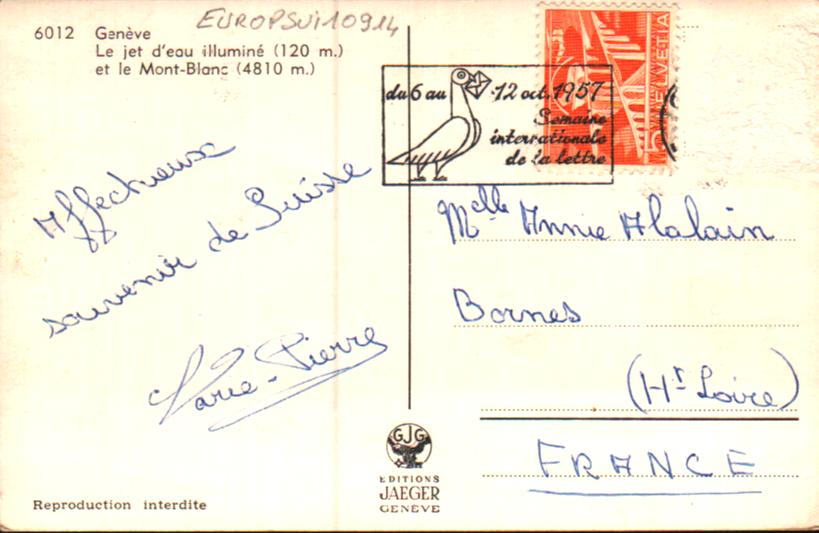 EUROPSUI10914
6012 Genève
Le jet d'eau illuminé (120 m.)
et le Mont-Blanc (4810 m.)
du 6 au 12 oct. 1957
Semaine
internationale
de la lettre
HELVETIA
5
Affectueux
souvenir de Suisse
Marie-Pierre
Melle Annie Alalain
Bornes
(Hte Loire)
FRANCE
GJG
EDITIONS
JAEGER
GENÈVE
Reproduction interdite